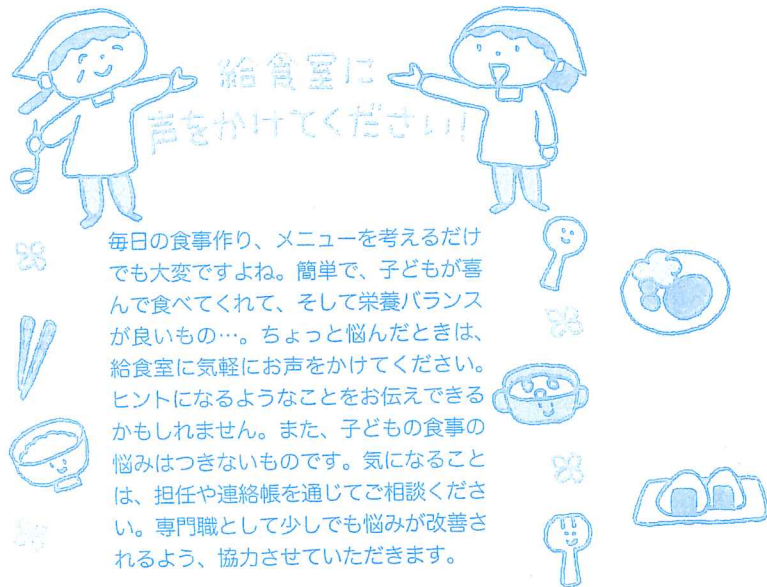 給食室に
声をかけてください!
毎日の食事作り、メニューを考えるだけ
でも大変ですよね。簡単で、子どもが喜
んで食べてくれて、そして栄養バランス
が良いもの…。ちょっと悩んだときは、
給食室に気軽にお声をかけてください。
ヒントになるようなことをお伝えできる
かもしれません。また、子どもの食事の
悩みはつきないものです。気になること
は、担任や連絡帳を通じてご相談くださ
い。専門職として少しでも悩みが改善さ
れるよう、協力させていただきます。